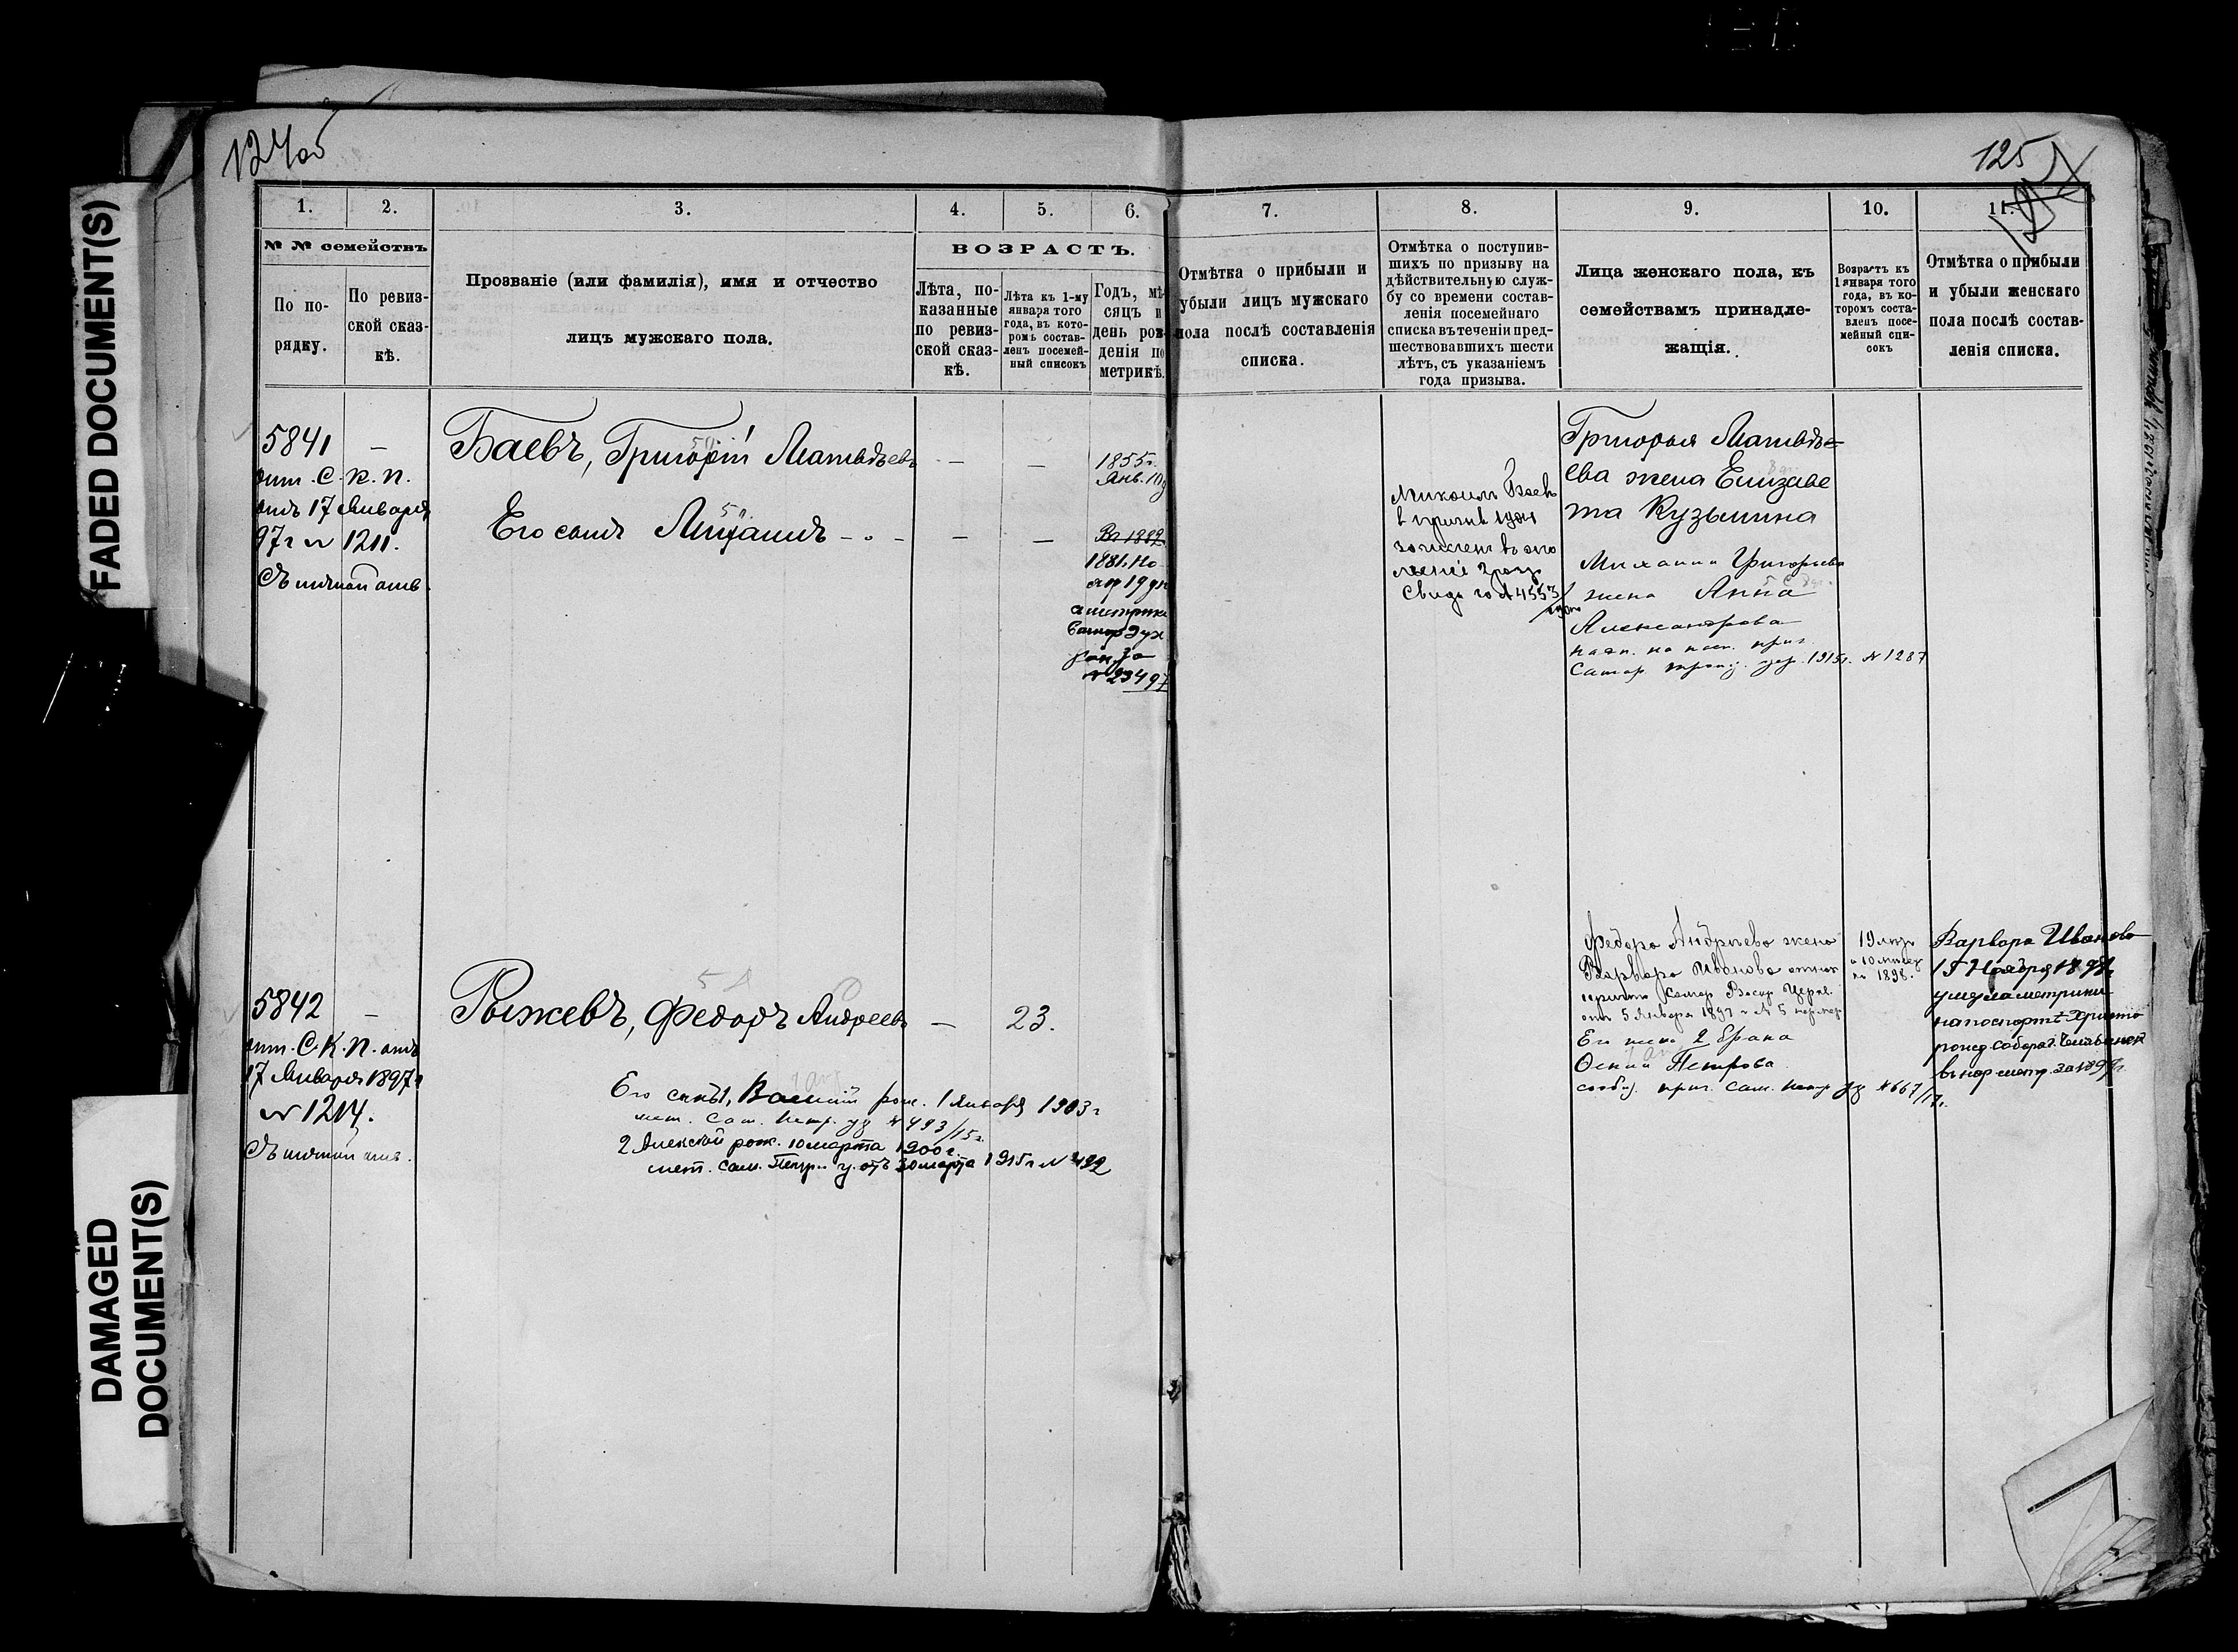 FADED DOCUMENT(S)
DAMAGED
DOCUMENT(S)
124об
125
1. 2. 3. 4. 5. 6. 7. 8. 9. 10. 11.
№ № семействъ
По по-
рядку.
По ревиз-
ской сказ-
кѣ.
Прозваніе (или фамилія), имя и отчество
лицъ мужскаго пола.
ВОЗРАСТЪ.
Лѣта, по-
казанные
по ревиз-
ской сказ-
кѣ.
Лѣта къ 1-му
января того
года, въ кото-
ромъ состав-
ленъ посемей-
ный списокъ
Годъ, мѣ-
сяцъ и
день рож-
денія по
метрикѣ.
Отмѣтка о прибыли и
убыли лицъ мужскаго
пола послѣ составленія
списка.
Отмѣтка о поступив-
шихъ по призыву на
дѣйствительную служ-
бу со времени состав-
ленія посемейнаго
списка въ теченіи пред-
шествовавшихъ шести
лѣтъ, съ указаніемъ
года призыва.
Лица женскаго пола, къ
семействамъ принадле-
жащія.
Возрастъ къ
1 января того
года, въ ко-
торомъ соста-
вленъ посе-
мейный спи-
сокъ
Отмѣтка о прибыли
и убыли женскаго
пола послѣ состав-
ленія списка.
5841 —
С. К. П.
отъ 17 Января
97 г № 1211.
Баевъ, Григорій Матвѣевъ — —
1855г.
Янв. 10
Его сынъ Михаилъ — —
Въ 1882
1881, Но-
яб 19 дня
метрика
№ 23497
Михаилъ Баевъ
Свид № 4553
Григорья Матвѣ-
ева жена Елизаве
та Кузьмина
Михаила Григорьева
жена Анна
Александрова
1915г. № 1287
5842 —
С. К. П. отъ
17 Января 1897 г
№ 1214.
Рыжевъ, Федоръ Андреевъ — 23.
Его сыны, Василій рож. 1 Января 1903 г
мет. Сам. Петр. уз № 493/15 г.
2 Алексѣй рож. 10 марта 1900 г.
мет. Сам. Петр. у. отъ 30 марта 1915 г № 492
Федора Андреева жена
Варвара Иванова
Самар Воскр Церкв.
отъ 5 Января 1897 г № 5
Его жена 2 брака
Петрова
Сам. № 667/17 г.
19 лѣтъ
и 10 мѣсяц
на 1898.
Варвара Иванова
15 Ноября 1898 г
умерла метрика
Христо
рожд. собора г. Челябинск